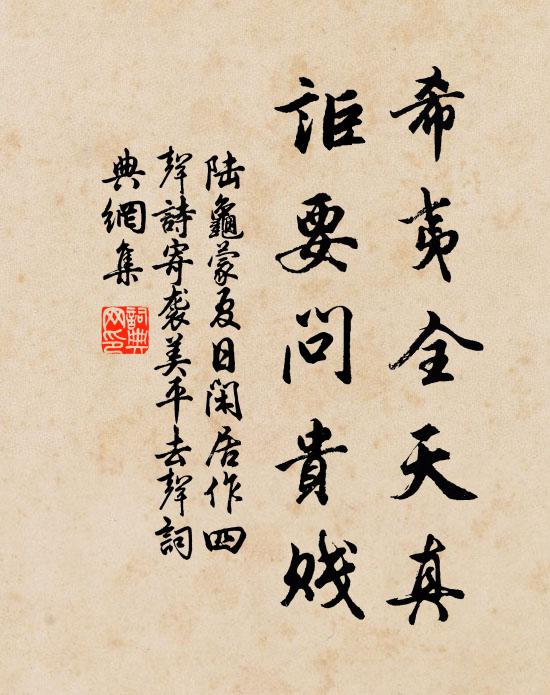 希夷全天真
詎要問貴賤
陆龜蒙夏日閑居作四
聲詩寄袭美平去聲詞
典網集
詞典網印